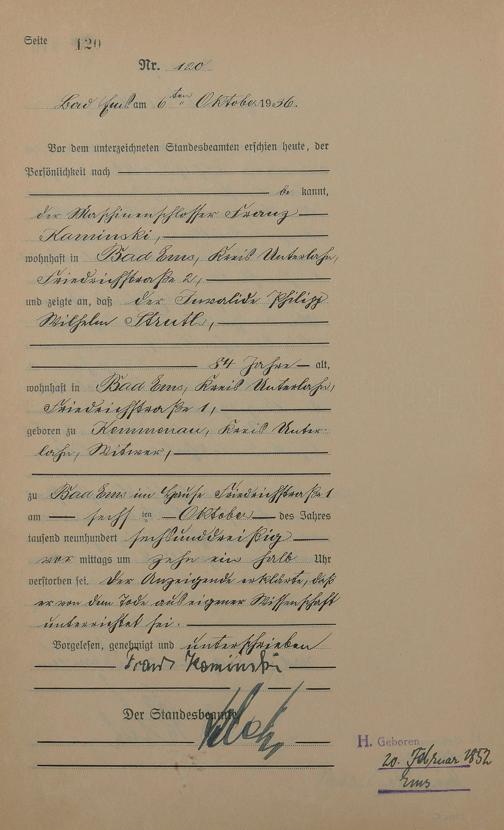 Seite 120
Nr. 120
Bad Ems am 6ten Oktober 1936.
Vor dem unterzeichneten Standesbeamten erschien heute, der
Persönlichkeit nach
be kannt,
der Maschinenschlosser Franz
Kaminski,
wohnhaft in Bad Ems, Kreis Unterlahn,
Friedrichstraße 2,
und zeigte an, daß der Invalide Philipp
Wilhelm
84 Jahre alt,
wohnhaft in Bad Ems, Kreis Unterlahn,
Friedrichstraße 1,
geboren zu Kemmenau, Kreis Unter-
lahn, Witwer,
zu Bad Ems im Hause Friedrichstraße 1
am sechs ten Oktober des Jahres
tausend neunhundert sechsunddreißig
vor mittags um zehn ein halb Uhr
verstorben sei. Der Anzeigende erklärte, daß
er von dem Tode aus eigener Wissenschaft
unterrichtet sei.
Vorgelesen, genehmigt und unterschrieben
Franz Kaminski
Der Standesbeamte
H. Geboren
20. Februar 1852
Ems